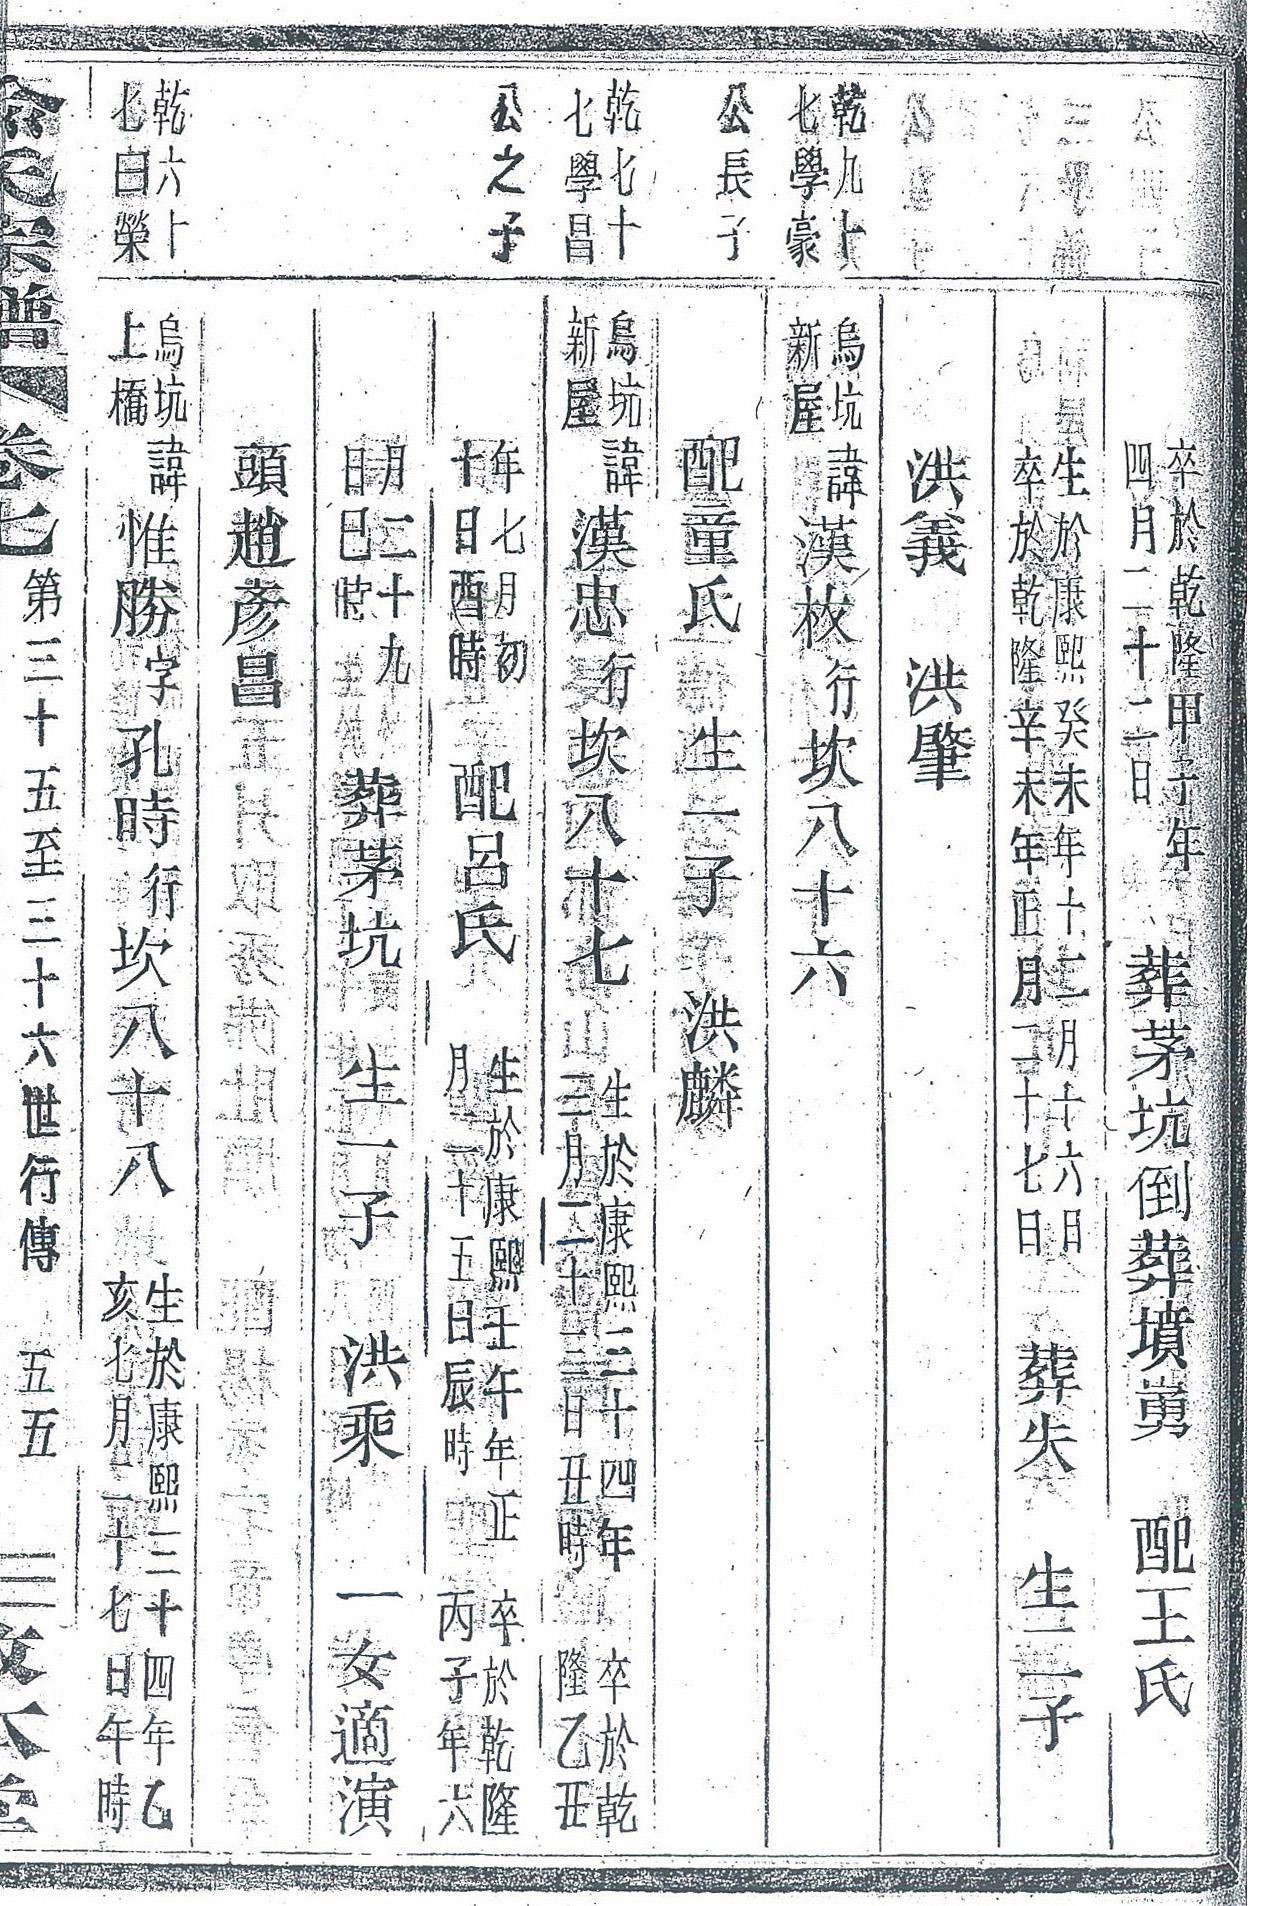 卒於乾隆甲子年
四月二十二日
葬茅坑倒葬墳塆 配王氏
生於康熙癸未年十二月十六日
卒於乾隆辛未年正月二十七日
葬失 生二子
洪義 洪肇
乾九十
七學豪
烏坑
新屋
諱漢枚行坎八十六
公長子
配童氏 生一子 洪麟
乾七十
七學昌
烏坑
新屋
諱漢忠行坎八十七
生於康熙三十四年
三月二十三日丑時
卒於乾
隆乙丑
公之子
年七月初
十日酉時
配呂氏
生於康熙壬午年正
月二十五日辰時
卒於乾隆
丙子年六
月二十九
日巳時
葬茅坑 生一子 洪乘 一女適演
頭趙彥昌
乾六十
七日榮
烏坑
上橋
諱惟勝字孔時行坎八十八
生於康熙三十四年乙
亥七月二十七日午時
宗譜 卷七 第三十五至三十六世行傳 五五